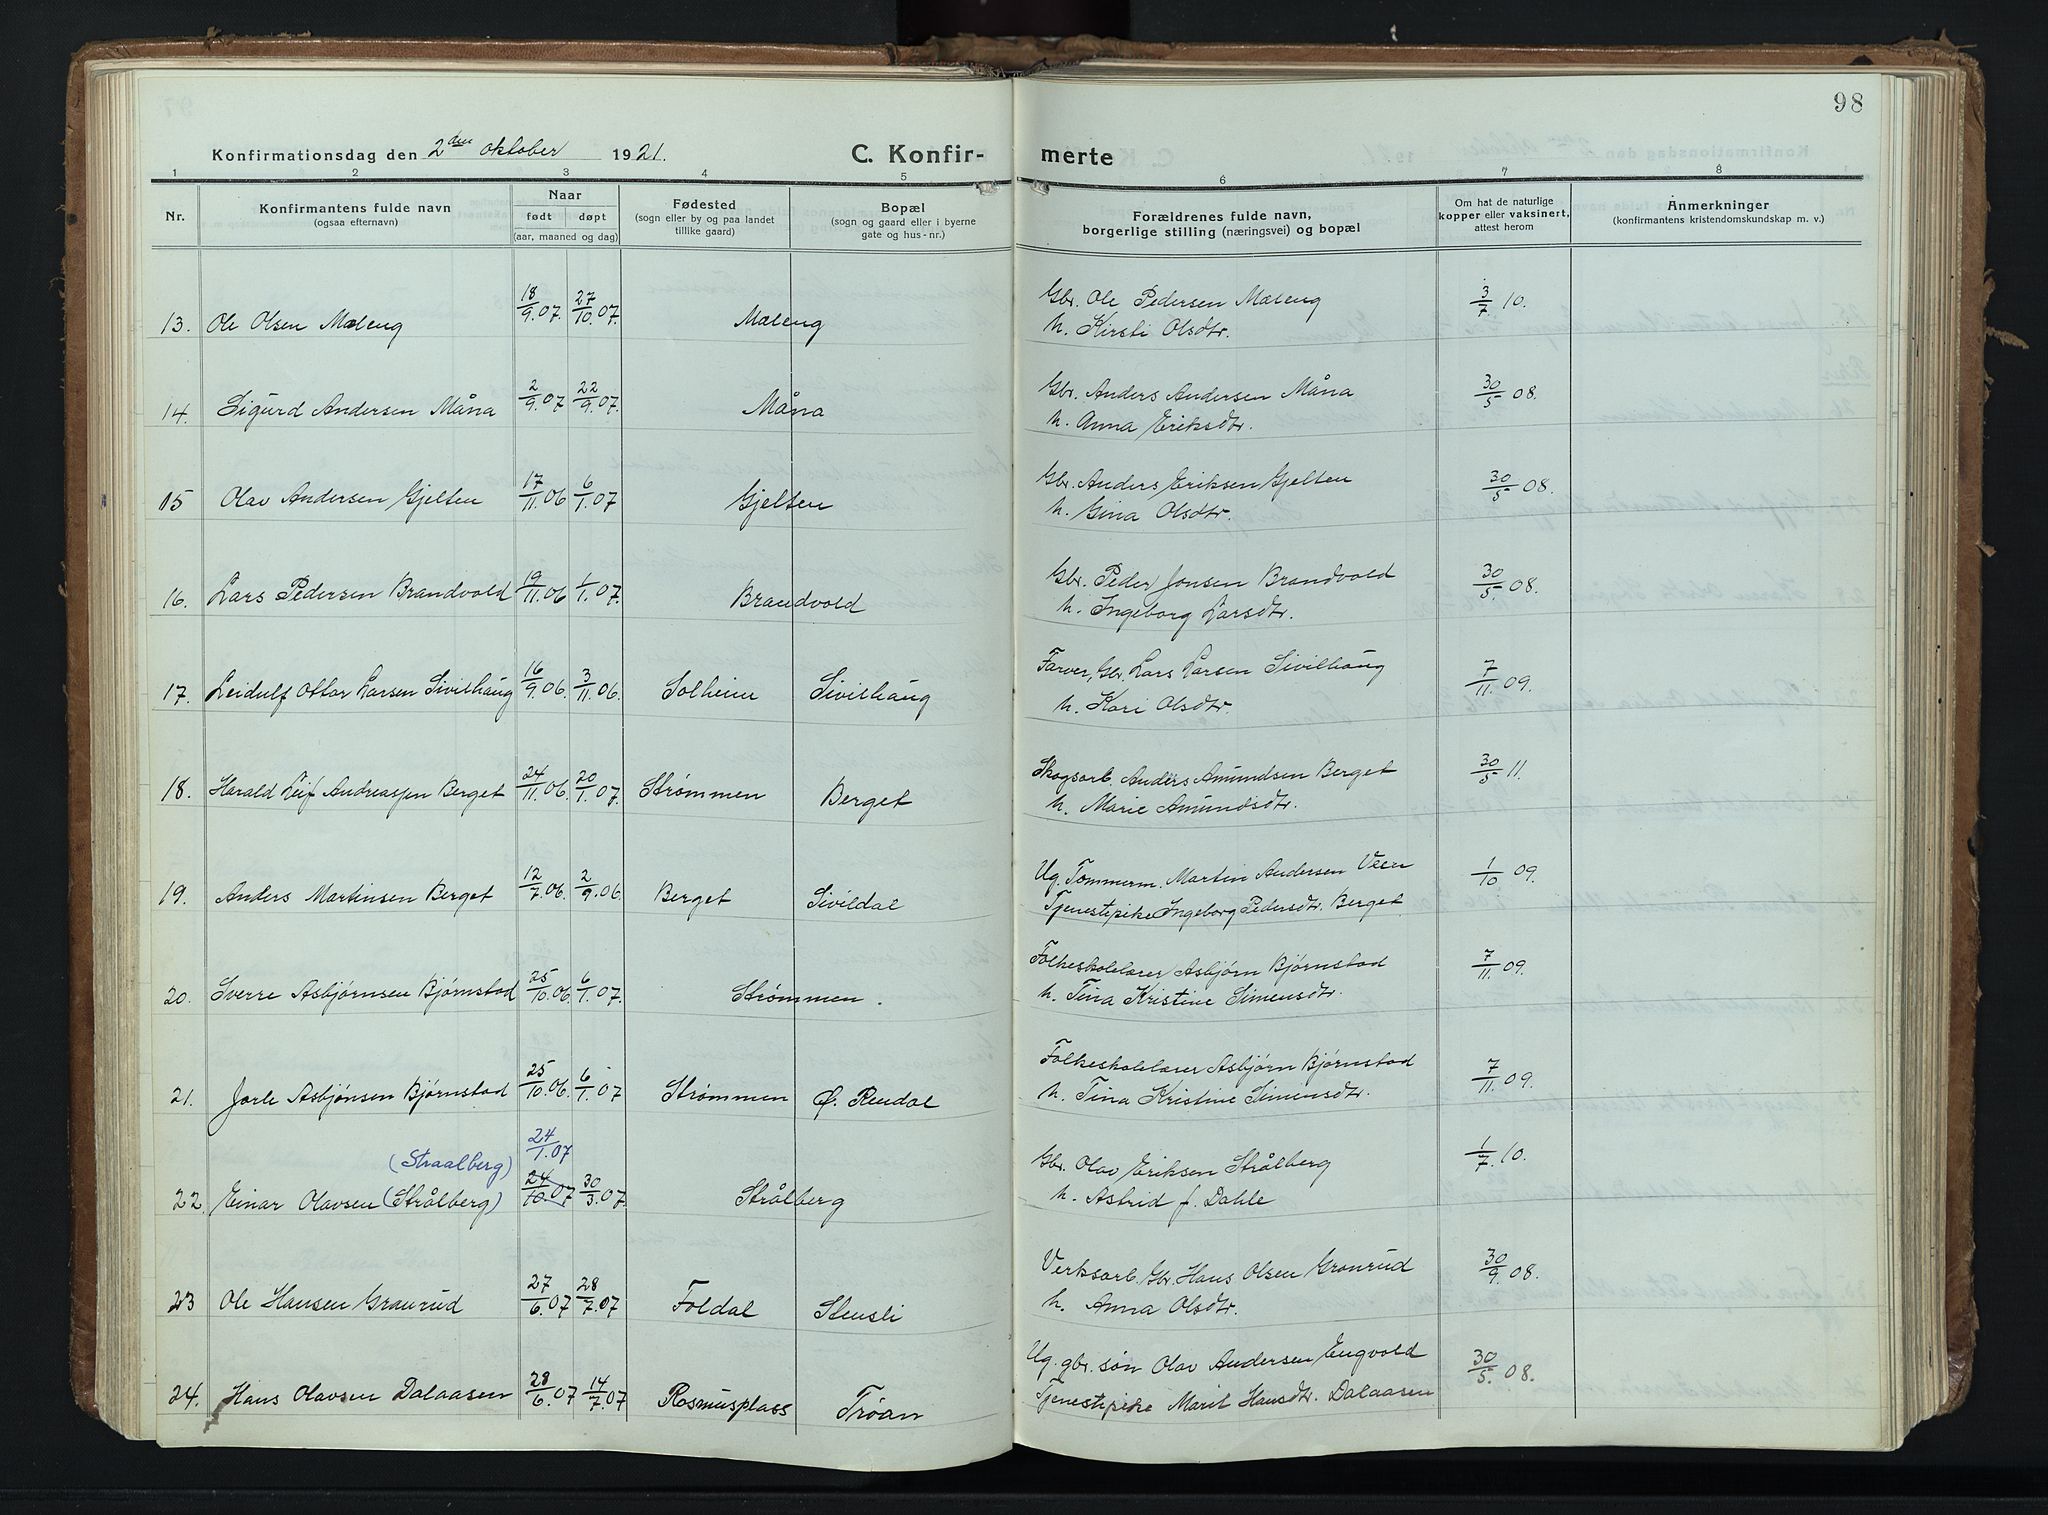 98
Konfirmationsdag den 2den oktober 1921.
C. Konfir-
merte
1 2 3 4 5 6 7 8
Nr.
Konfirmantens fulde navn
(ogsaa efternavn)
Naar
født døpt
(aar, maaned og dag)
Fødested
(sogn eller by og paa landet
tillike gaard)
Bopæl
(sogn og gaard eller i byerne
gate og hus-nr.)
Forældrenes fulde navn,
borgerlige stilling (næringsvei) og bopæl
Om hat de naturlige
kopper eller vaksinert,
attest herom
Anmerkninger
(konfirmantens kristendomskundskap m. v.)
13. Ole Olsen Mæleng 18/9.07. 27/10.07. Mæleng Gbr. Ole Pedersen Mæleng 3/7 10.
h. Kirsti Olsdtr.
14. Sigurd Andersen Måna 2/9.07 22/9.07. Måna Gbr. Anders Andersen Måna 30/5 08.
h. Anna Eriksdtr.
15 Olav Andersen Gjelten 17/11.06 6/1.07 Gjelten Gbr. Anders Eriksen Gjelten 30/5 08.
h. Gina Olsdtr.
16. Lars Pedersen Brandvold 19/11.06 1/1.07. Brandvold Gbr. Peder Jonsen Brandvold 30/5. 08.
h. Ingeborg Larsdtr.
17. Leidulf Ottar Larsen Sivilhaug 16/9.06. 3/11.06. Solheim Sivilhaug Farver, Gbr. Lars Larsen Sivilhaug 7/11. 09.
h. Kari Olsdtr.
18. Harald Leif Andreassen Berget 24/11.06. 20/1.07. Strømmen Berget Skogsarb. Anders Amundsen Berget 30/5 11.
h. Marie Amundsdtr.
19. Anders Martinsen Berget 12/7.06. 2/9.06. Berget Sivildal Ug. Tømmerm. Martin Andersen Veen 1/10 09.
Tjenestepike Ingeborg Pedersdtr. Berget
20. Sverre Asbjørnsen Bjørnstad 25/10.06. 6/1.07. Strømmen. Folkeskolelærer Asbjørn Bjørnstad 7/11. 09.
h. Tina Kristine Simensdtr.
21. Jarle Asbjønsen Bjørnstad 25/10.06. 6/1.07 Strømmen Ø. Rendal Folkeskolelærer Asbjørn Bjørnstad 7/11. 09.
h. Tina Kristine Simensdtr.
(Straalberg) 24/1.07
22. Einar Olavsen (Strålberg) 24/10.07 30/3.07. Strålberg Gbr. Olav Eriksen Strålberg 1/7. 10.
h. Astrid f. Dahle
23 Ole Hansen Granrud 27/6.07 28/7.07 Foldal Stensli Verksarb. Gbr. Hans Olsen Granrud 30/9. 08.
h. Anna Olsdtr.
24. Hans Olavsen Dalaasen 28/6.07 14/7.07 Rasmusplass Trøan Ug. gbr. søn Olav Andersen Engvold 30/5. 08.
Tjenestepike Marit Hansdtr. Dalaasen